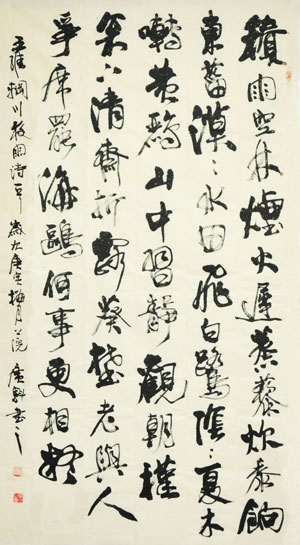 積雨空林煙火遲蒸藜炊黍餉
東菑漠〻水田飛白鷺陰〻夏木
囀黃鸝山中習靜觀朝槿
松下清齋折露葵野老與人
爭席罷海鷗何事更相疑
王維輞川 詩 歲次庚寅梅月 廣 書